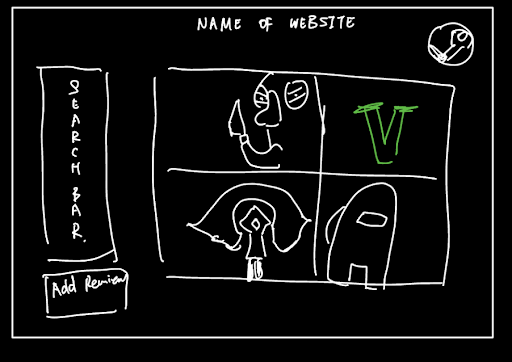 NAME OF WEBSITE
SEARCH BAR.
V
Add Review